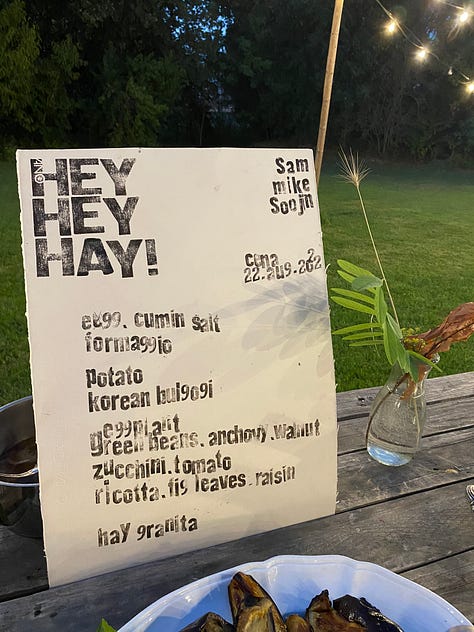 HEY
HEY
HAY!
Sam
mike
Soojn
cena
22.aug.2022
egg. cumin salt
formaggio
potato
korean bulgogi
eggplant
green beans. anchovy. walnut
zucchini. tomato
ricotta. fig leaves. raisin
hay granita